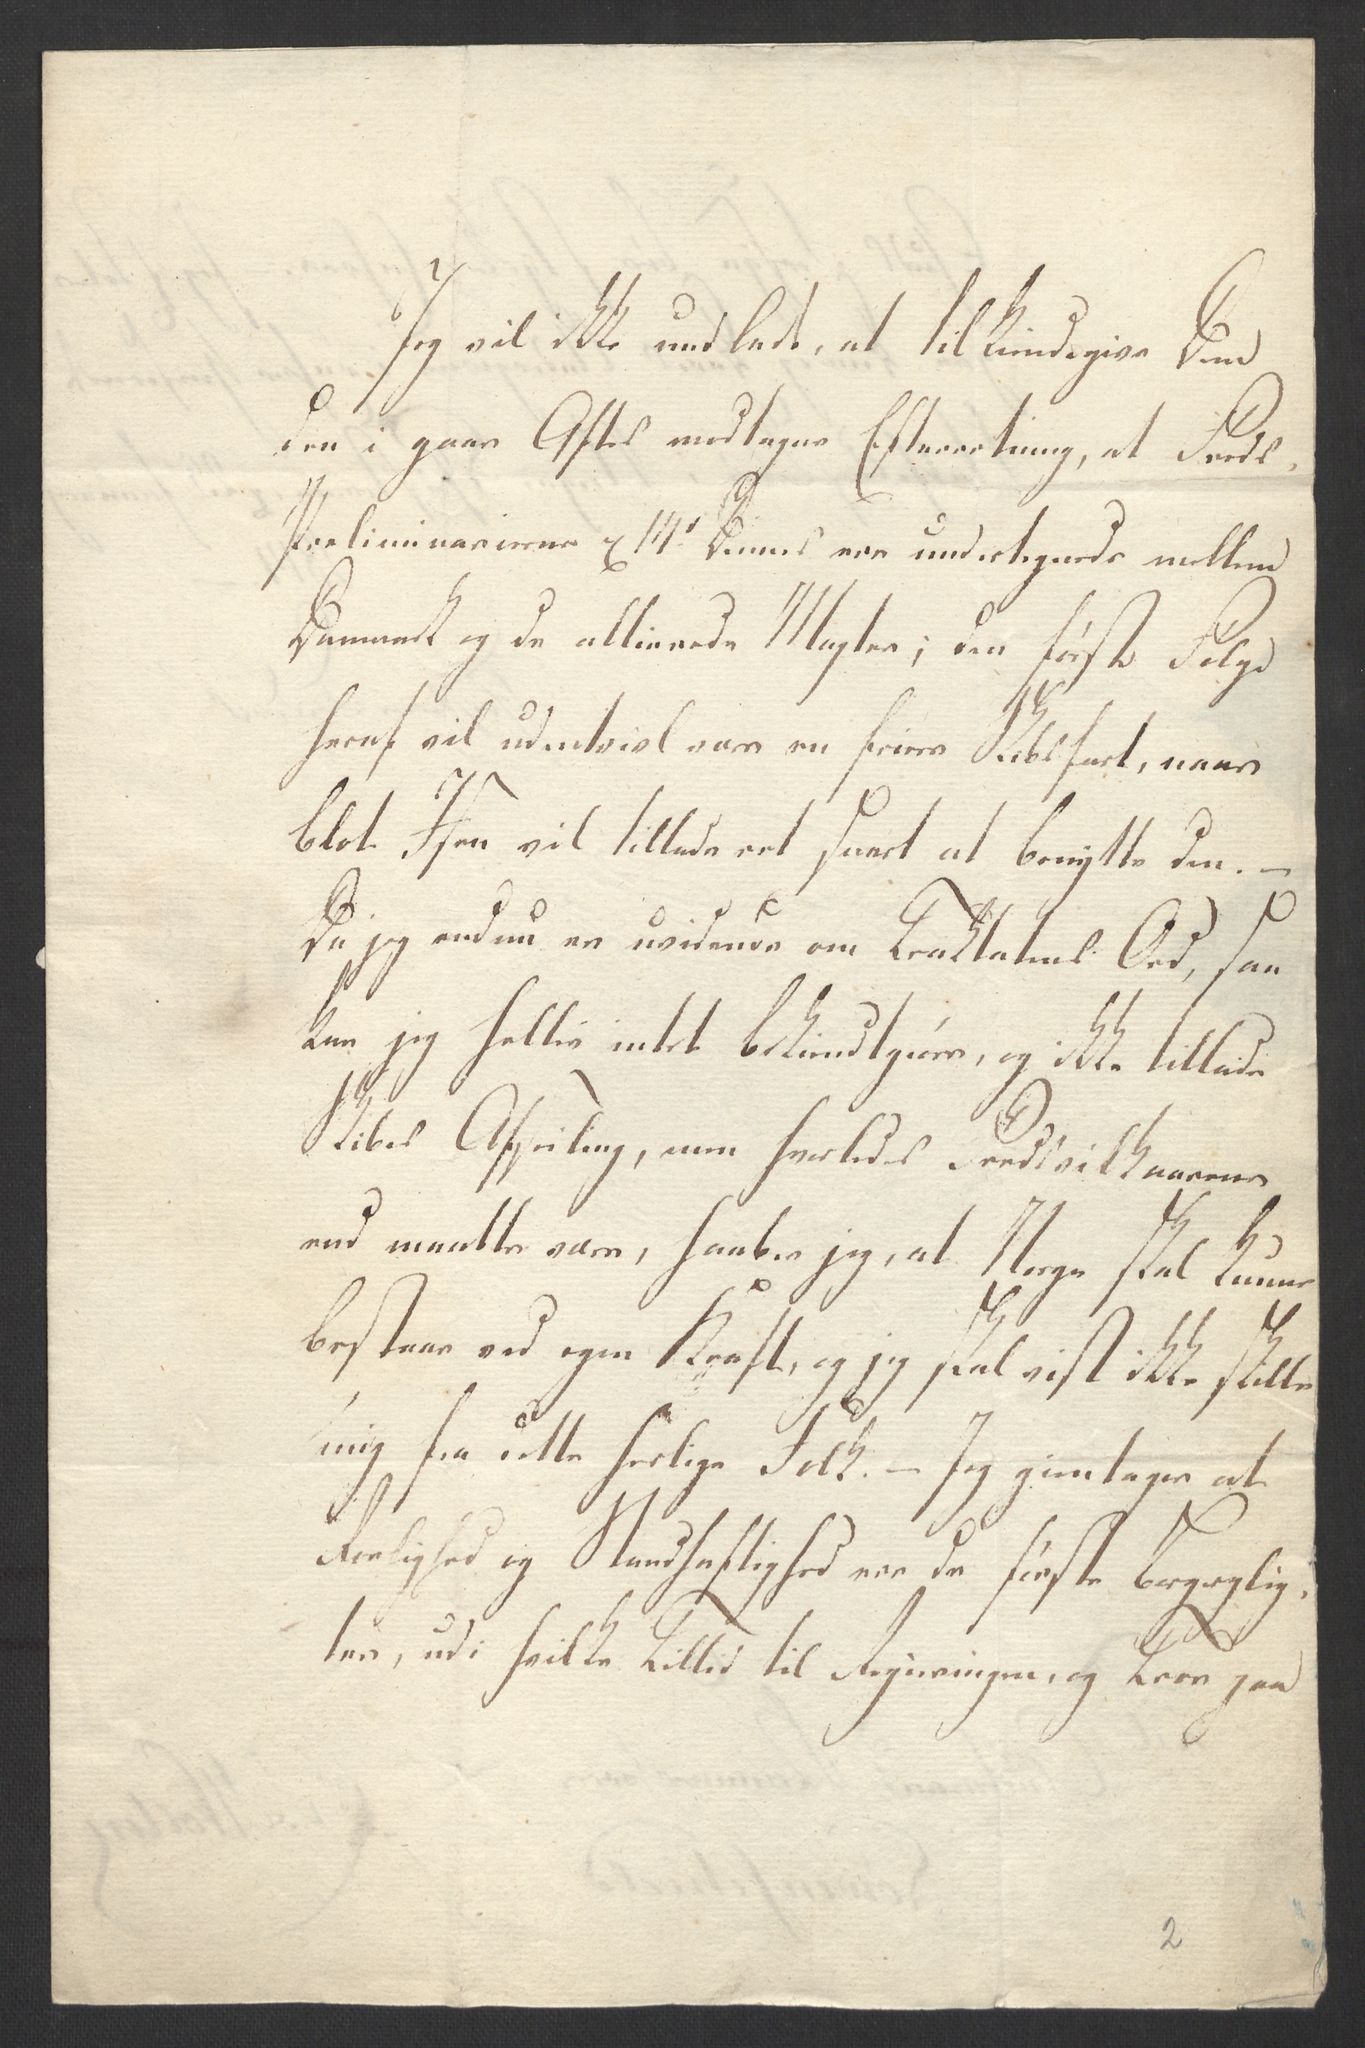 Jeg vil ikke undlade, at tilkiendegive Dem
den i gaar Aftes modtagne Efterretning, at Freds-
Preliminarierne d. 14d. Dennes ere undertegnede mellem
Danmark og de allierede Magter; den første Følge
heraf vil udentvivl være en friere Skibsfart, naar
blot Isen vil tillade ret snart at benytte den. —
Da jeg endnu er uvidende om Traktatens Ord, saa
kan jeg heller intet bekiendtgiøre, og ikke tillade
Skibes Afseiling, men hvorledes Fredsvilkaarene
end maatte være, haaber jeg, at Norge skal kunne
bestaae ved egen Kraft, og jeg skal vist ikke skille
mig fra dette herlige Folk. — Jeg gientager at
Roelighed og Standhaftighed ere de første Borgerplig-
ter, udi hvilke Tillid til Regieringen, og Troe paa
2